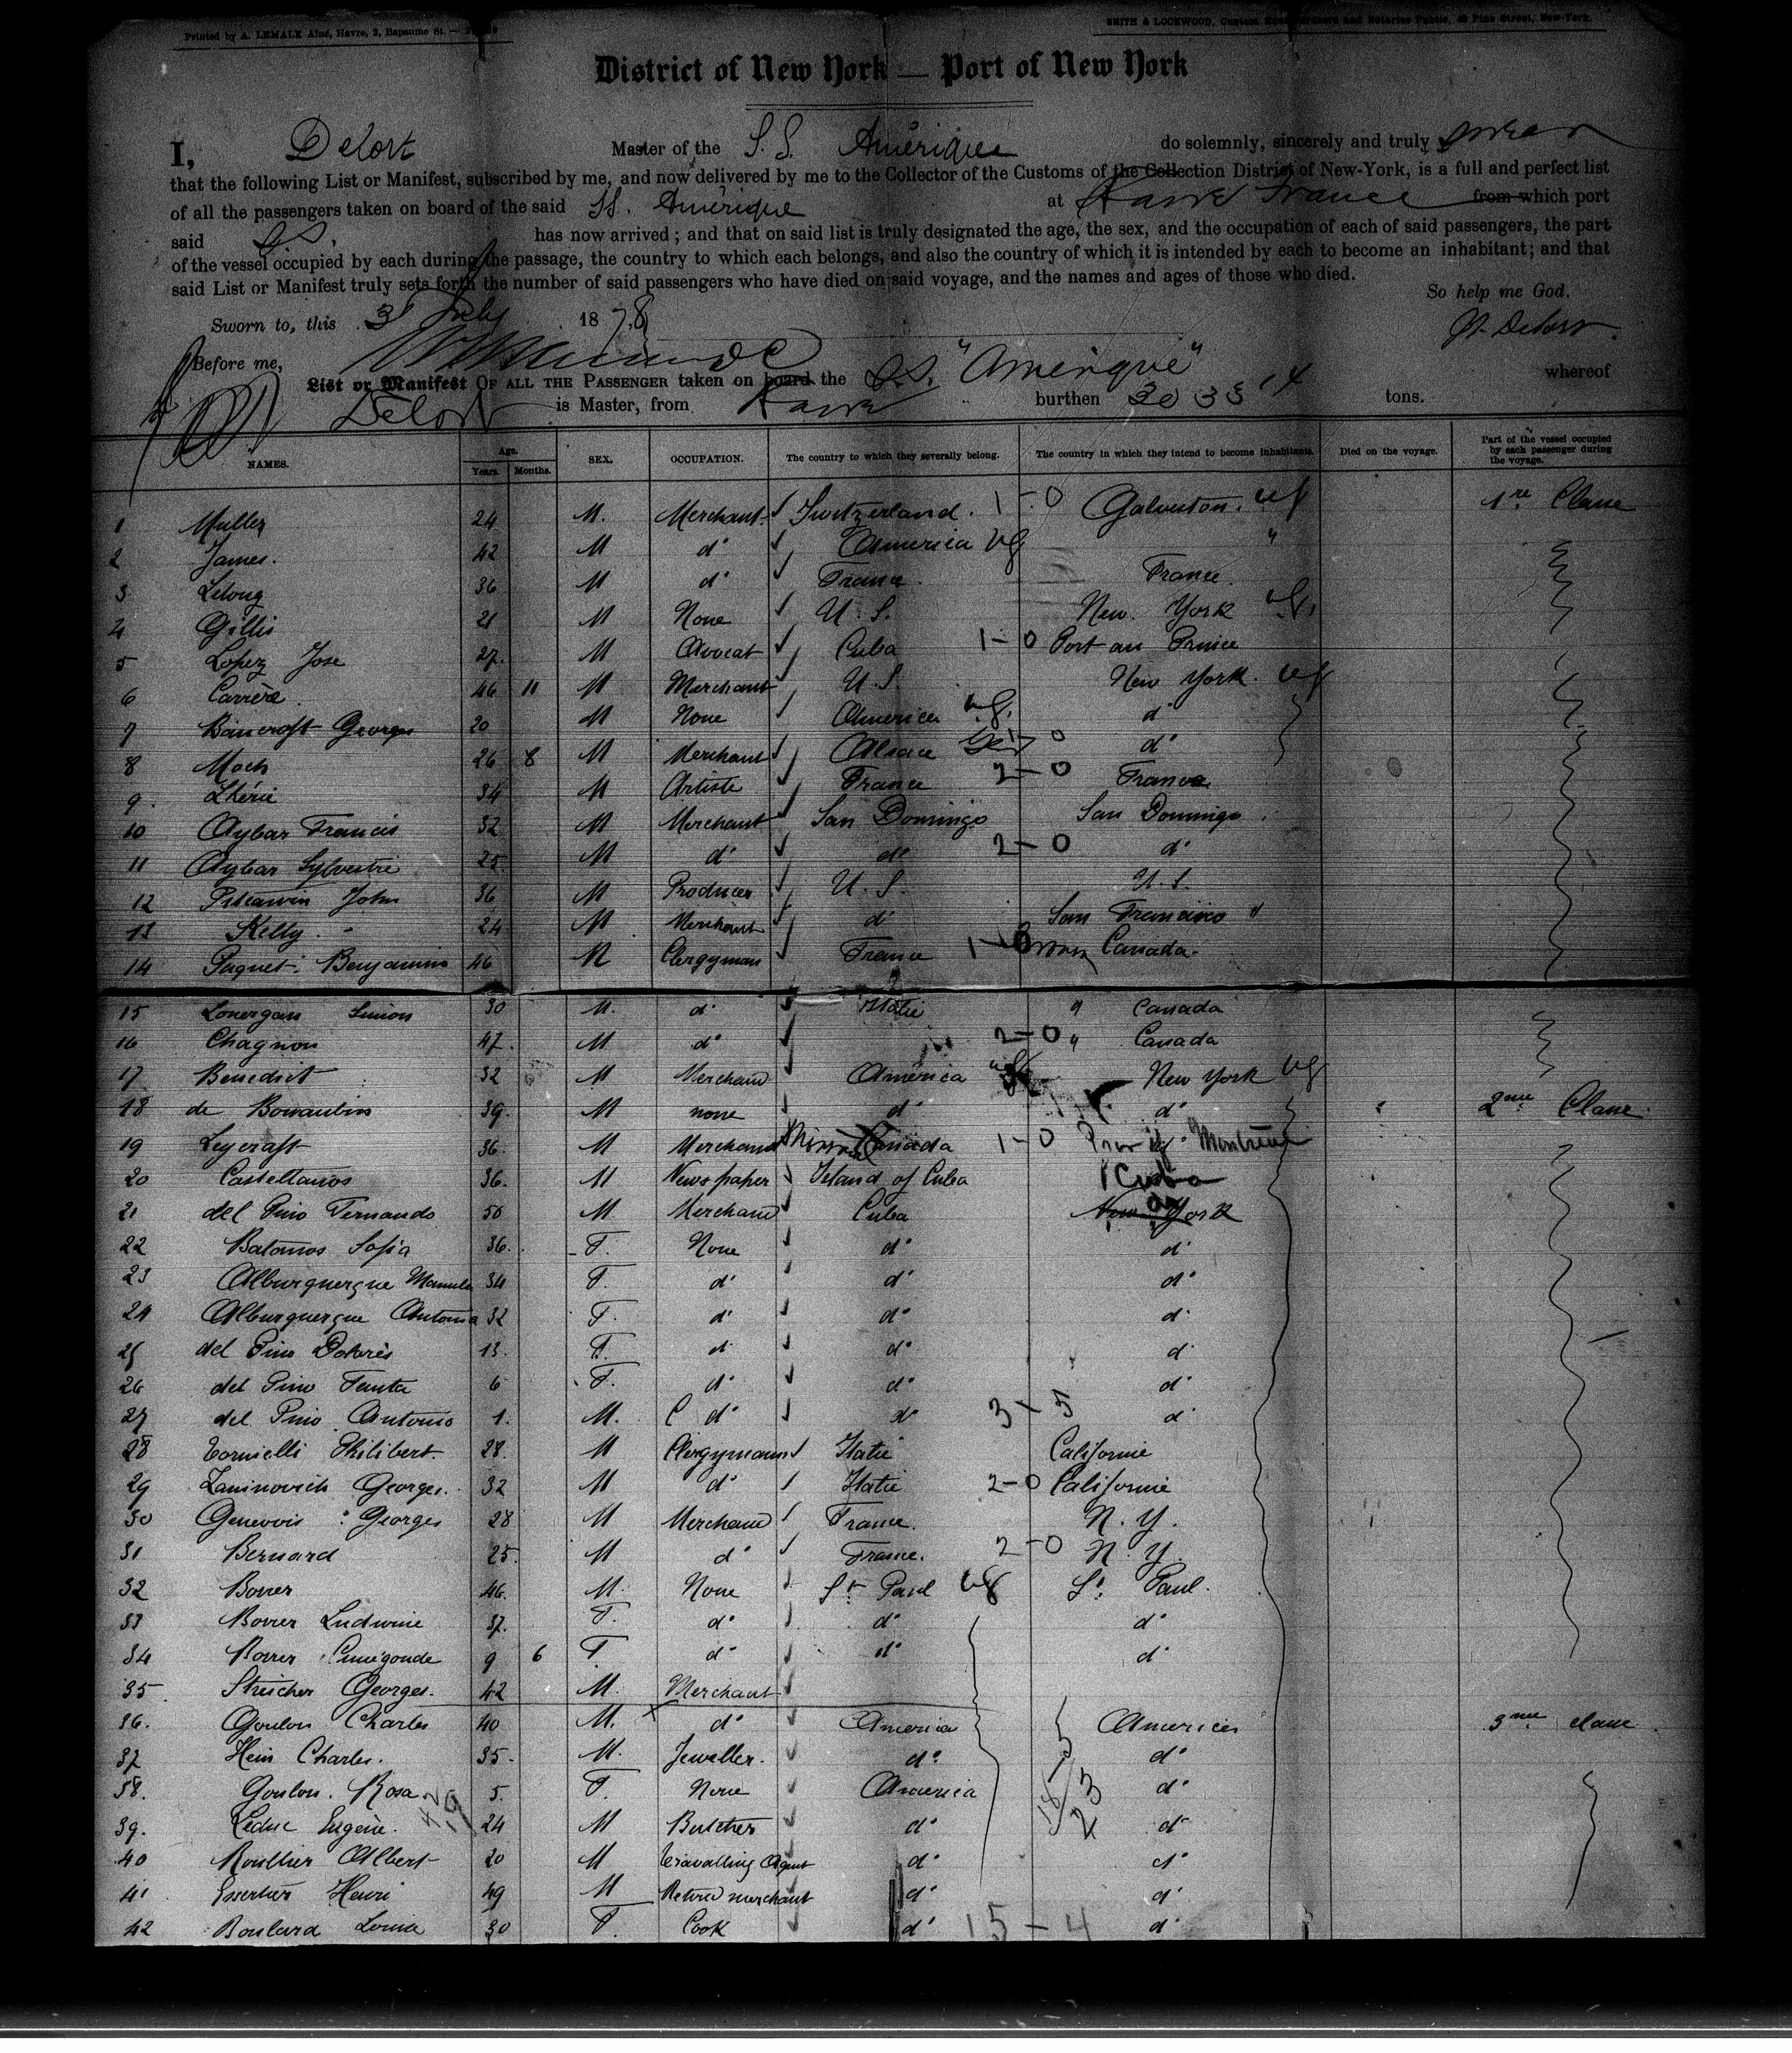 Printed by A. LEMALE Aîné, Havre, 3, Bapaume St.
SMITH & LOCKWOOD, Custom House Brokers and Notaries Public, 49 Pine Street, New-York.
District of New York — Port of New York
I, Delort Master of the S.S. Amérique do solemnly, sincerely and truly swear
that the following List or Manifest, subscribed by me, and now delivered by me to the Collector of the Customs of the Collection District of New-York, is a full and perfect list
of all the passengers taken on board of the said SS. Amérique at Havre France from which port
said S.S. has now arrived; and that on said list is truly designated the age, the sex, and the occupation of each of said passengers, the part
of the vessel occupied by each during the passage, the country to which each belongs, and also the country of which it is intended by each to become an inhabitant; and that
said List or Manifest truly sets forth the number of said passengers who have died on said voyage, and the names and ages of those who died.
So help me God.
Sworn to, this 31 July 1878 Delort
Before me,
List or Manifest OF ALL THE PASSENGER taken on board the S.S. "Amerique" whereof
Delort is Master, from Havre burthen 3033 14 tons.
NAMES. Age. Years. Months. SEX. OCCUPATION. The country to which they severally belong. The country in which they intend to become inhabitants. Died on the voyage. Part of the vessel occupied by each passenger during the voyage.
1 Muller 24 M. Merchant. Switzerland. 1-0 Galveston. 1re Classe
2 James. 42 M do America "
3 Lelong 36 M do France. France.
4 Gillis 21 M None U.S. New York
5 Lopez Jose 27. M Avocat Cuba 1-0 Port au Prince
6 Carrère 46 11 M Merchant U.S. New York.
7 Bancroft Georges 20 M None America do
8 Moch 26 8 M Merchant Alsace 0 do
9. Lhérie 34 M Artiste France 2-0 France
10 Aybar Francis 32 M Merchant San Domingo San Domingo
11 Aybar Sylvestre 25 M do do 2-0 do
12 John 36 M Producer U.S. U.S.
13 Kelly 24 M Merchant do San Francisco "
14 Paquet Benjamin 46 M Clergyman France 1-0 Canada
15 Lonergan Simon 30 M. do Italie " Canada
16 Chagnon 47. M do 2-0 " Canada
17 Benedict 32 M Merchand America New York
18 de 39. M none do do 2me Classe
19 Leycraft 36. M Merchand Canada 1-0 Montreal
20 Castellanos 36. M Newspaper Island of Cuba Cuba
21 del Pino Fernando 50 M Merchand Cuba New York
22 Batanos Sofia 36. F. None do do
23 Alburquerque Manuela 34 F. do do do
24 Alburquerque Antonia 32 F. do do do
25 del Pino Dolorès 13. F. do do do
26 del Pino 6 F. do do do
27 del Pino Antonio 1. M. do do 3-5 do
28 Tornielli Philibert. 28. M Clergymann Italie Californie
29 Zaninovich Georges. 32 M do Italie 2-0 Californie
30 Genevois Georges 28 M Merchand France. N.Y.
31 Bernard 25. M do France. 2-0 N.Y.
32 Borrer 46. M. None St Paul St. Paul.
33 Borrer Ludwine 37. F. do do do
34 Borrer Cunégonde 9 6 F do do do
35. Streicher Georges. 42 M. Merchant
36. Goulon Charles 40 M. do America America 3me classe
37 Hein Charles. 35. M. Jeweller. do do
38. Goulon. Rosa 5. F. None America do
39. Leduc Eugène. 24 M Butcher do do
40 Roullier Albert 20 M Travalling Agent do do
41 Henri 49 M Retired merchant do do
42 Boulard Louise 30 F. Cook do 15-4 do